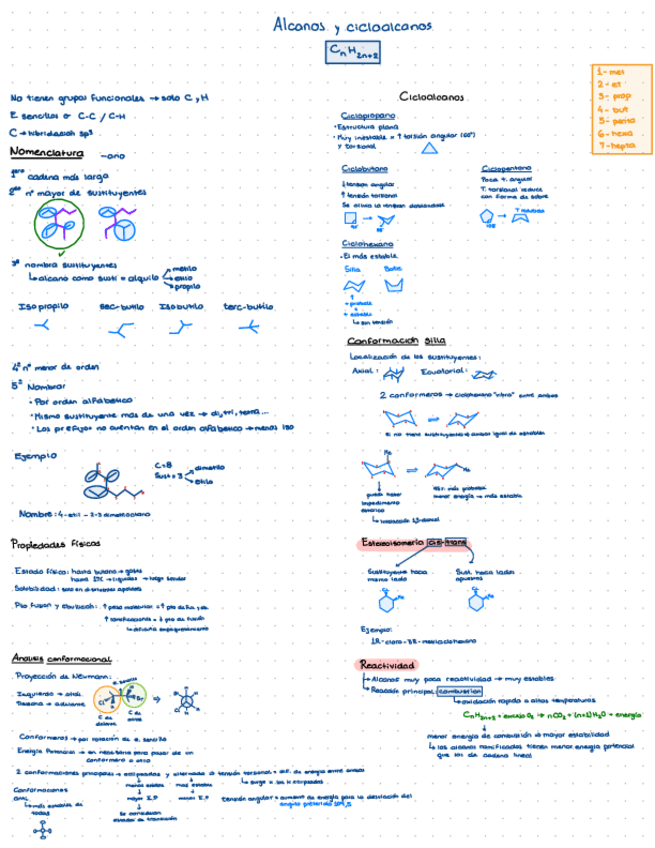 Alcanos y cicloalcanos
CnH2n+2
1- met
2- et
3- prop
4- but
5- penta
6- hexa
7- hepta
No tienen grupos funcionales → solo C y H
E sencillos σ C-C / C-H
C → hibridación sp³
Nomenclatura -ano
1ero cadena más larga
2do nº mayor de sustituyentes
3º nombra sustituyentes
↳ alcano como susti = alquilo
metilo
etilo
propilo
Isopropilo sec-butilo Isobutilo terc-butilo
4º nº menor de orden
5º Nombrar
• Por orden alfabético
• Mismo sustituyente más de una vez → di, tri, tetra...
• Los prefijos no cuentan en el orden alfabético → menos iso
Ejemplo
C=8
Sust = 3
dimetilo
etilo
Nombre: 4-etil-2-3 dimetiloctano
Propiedades físicas
Estado físico: hasta butano → gases
Solubilidad: solo en disolventes apolares
Pto fusión y ebullición: ↑ peso molecular = ↑ pto de fus y eb.
Análisis conformacional
Proyección de Newmann:
Izquierdo → atrás
C de
C de
Confórmeros → por rotación de e. sencillo
Energía Potencial → en necesaria para pasar de un
confórmero a otro
2 conformaciones principales → eclipsadas y alternada
tensión torsional = dif. de energía entre ambas
menos estable
más estable
mayor E.P
menor E.P
Se consideran
estado de transición
tensión angular = aumento de energía para la desviación del
ángulo preferido 109,5
Conformaciones
anti
↳ más estables de
todas
Cicloalcanos
Ciclopropano
• Estructura plana
• Muy inestable = ↑ tensión angular (60º)
y torsional
Ciclobutano
↓ tensión angular
↑ tensión torsional
Ciclopentano
Poca t. angular
T. torsional reduce
con forma de sobre
T reducida
Ciclohexano
• El más estable
Silla Bote
+ estable
↳ sin tensión
Conformación silla
Localización de los sustituyentes:
Axial: Ecuatorial:
2 confórmeros → ciclohexano "vibra" entre ambos
Si no tiene sustituyentes ambos igual de estables
Me
Me
puede haber
impedimento
estérico
↳ interacción 1,3-diaxial
menor energía → más estable
Estereoisomería cis-trans
Sustituyente hacia
mismo lado
Sust. hacia lados
opuestos
Ejemplo:
1R-cloro-3R-metilciclohexano
Reactividad
↳ Alcanos muy poca reactividad → muy estables
↳ Reacción principal: combustión
↳ oxidación rápida a altas temperaturas
CnH2n+2 + exceso O2 → nCO2 + (n+1)H2O + energía
menor energía de combustión → mayor estabilidad
↳ los alcanos ramificados tienen menor energía potencial
que los de cadena lineal